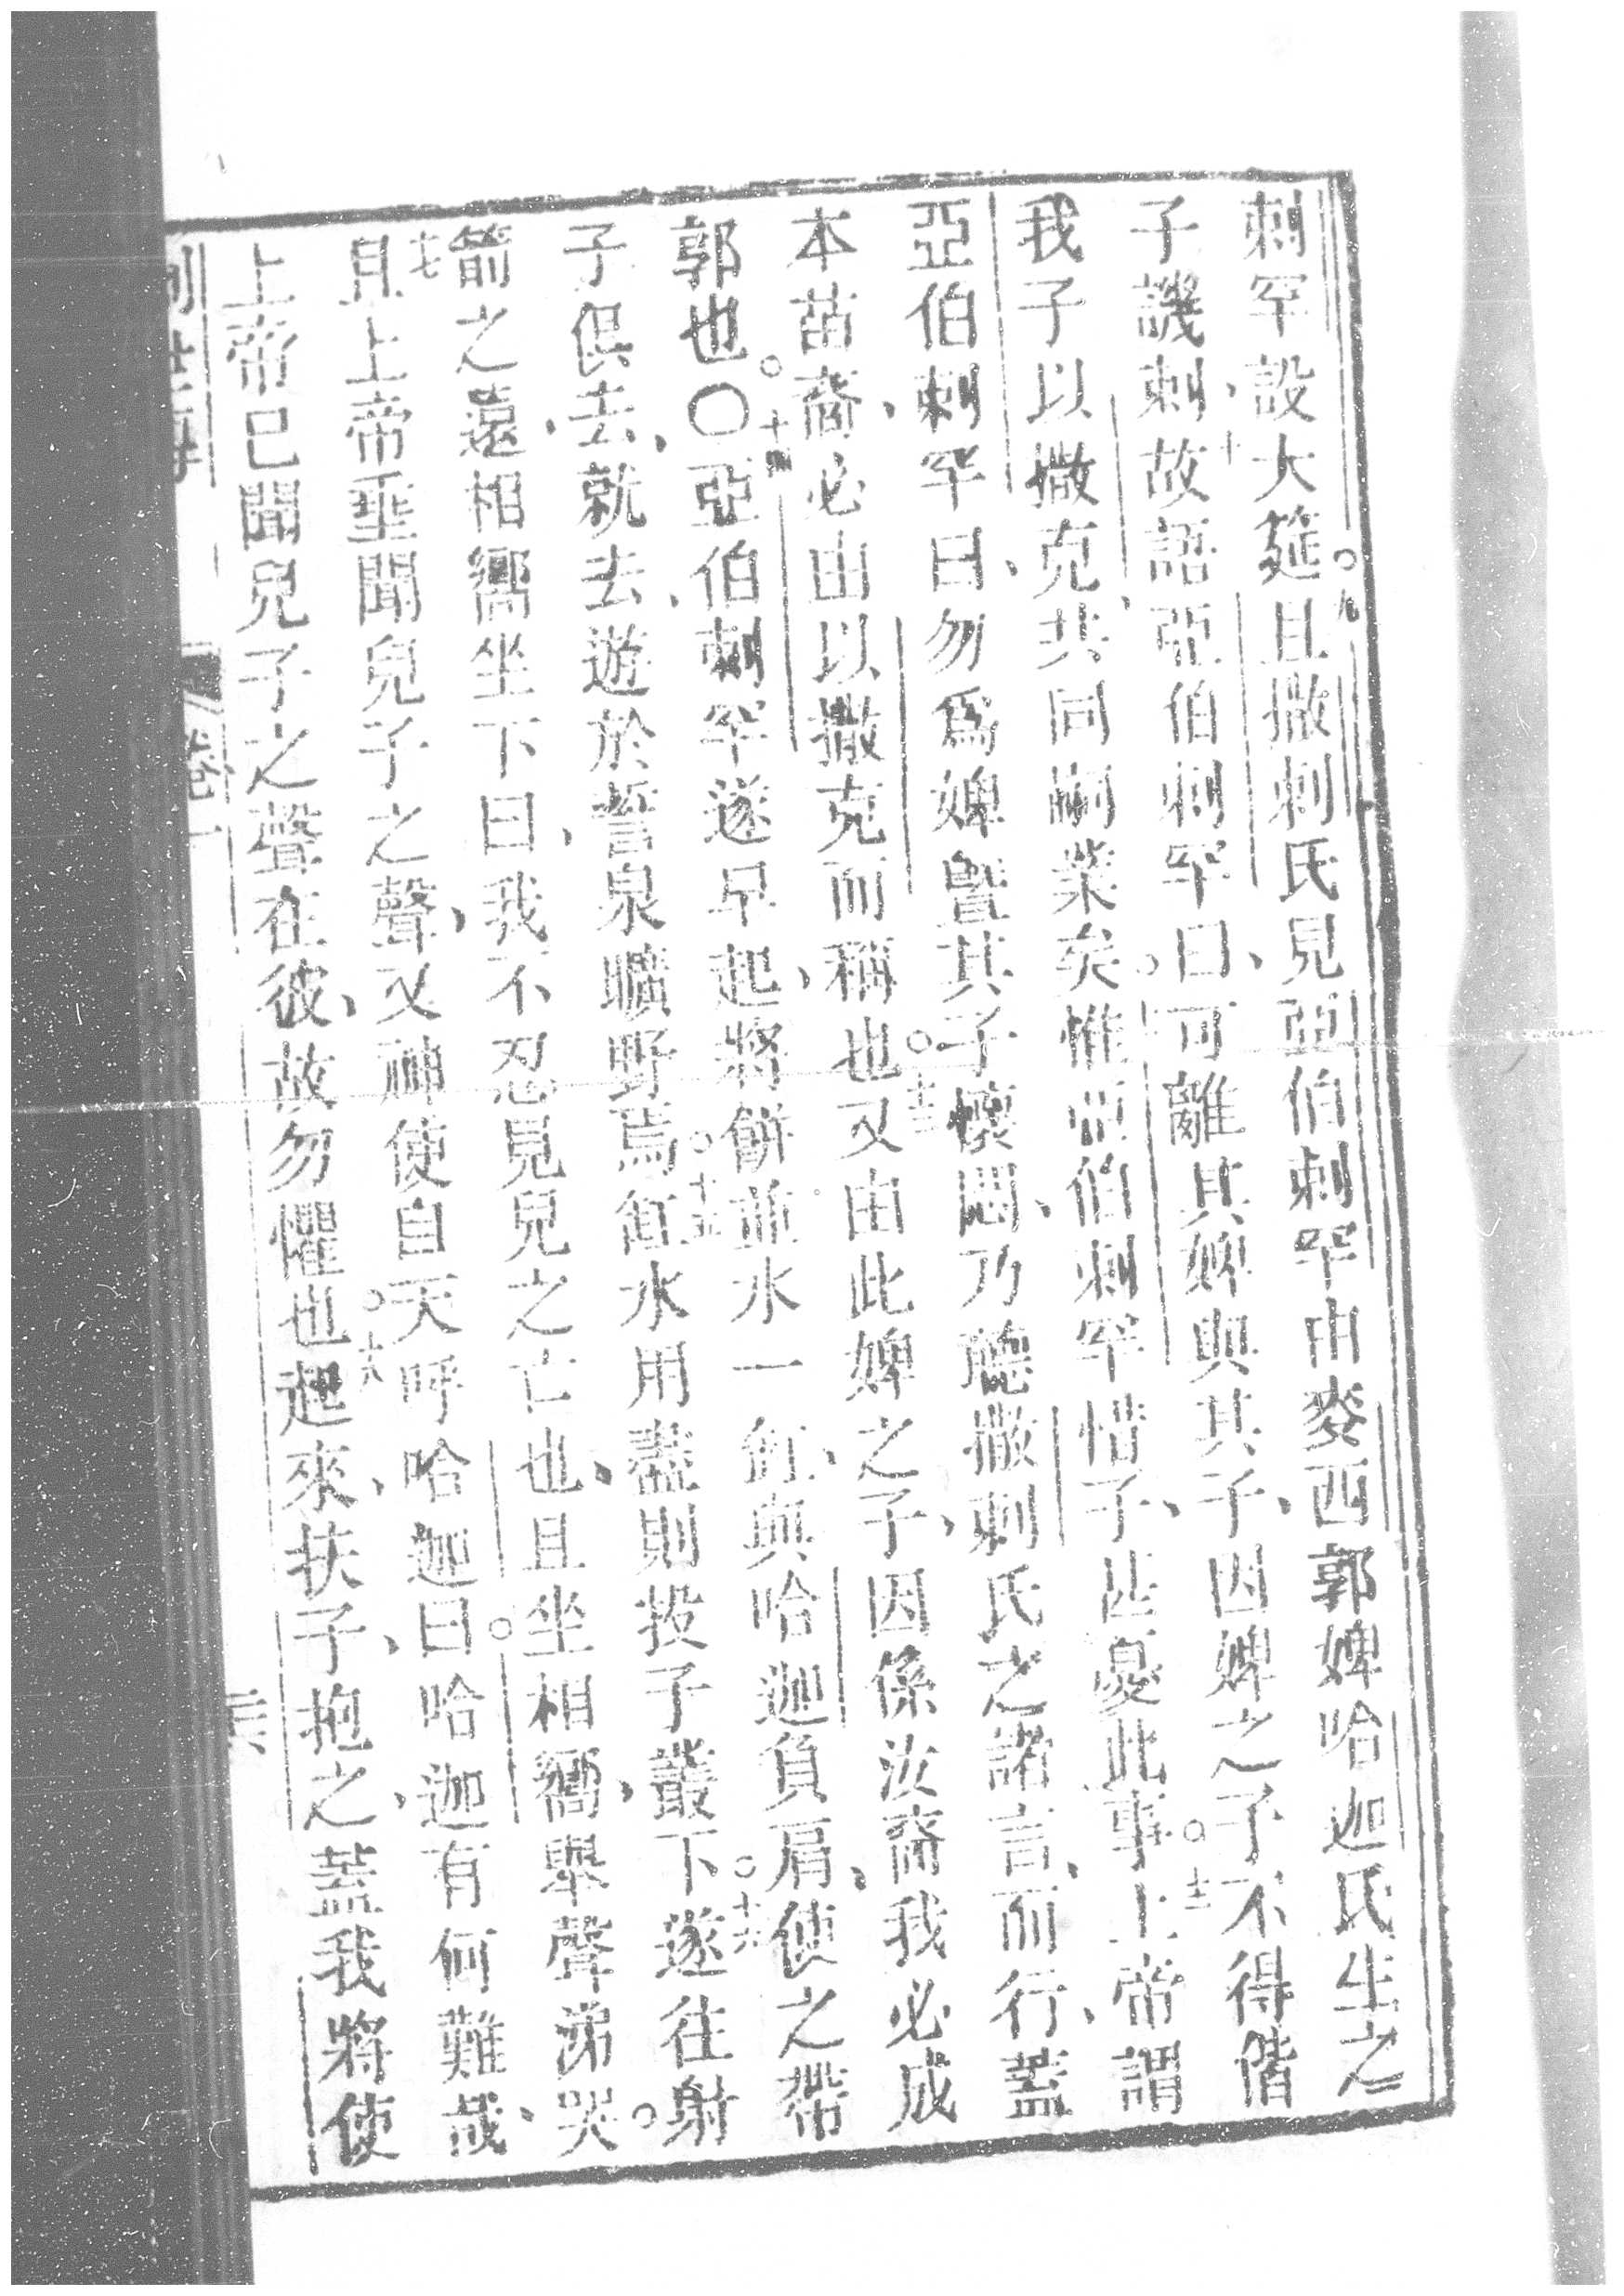 刺罕設大筵。九且撒刺氏見亞伯刺罕由麥西郭婢哈迦氏生之
子譏刺、十故語亞伯刺罕曰、可離其婢與其子、因婢之子不得偕
我子以撒克、共同嗣業矣。惟亞伯刺罕惜子、甚憂此事。十二上帝謂
亞伯刺罕曰、勿爲婢曁其子懷悶、乃聽撒刺氏之諸言、而行、蓋
本苗裔、必由以撒克而稱也。十三又由此婢之子、因係汝裔我必成
郭也。〇十四亞伯刺罕遂早起、將餅並水一缻、與哈迦負肩、使之帶
子俱去、就去、遊於誓泉曠野焉。十五缻水用盡則投子叢下。十六遂往射
箭之遠、相嚮坐下曰、我不忍見兒之亡也、且坐相嚮、舉聲涕哭。
十七且上帝垂聞兒子之聲、又神使自天呼哈迦曰。哈迦有何難哉、
上帝已聞兒子之聲在彼、故勿懼也。十八起來、扶子、抱之、蓋我將使
卷一